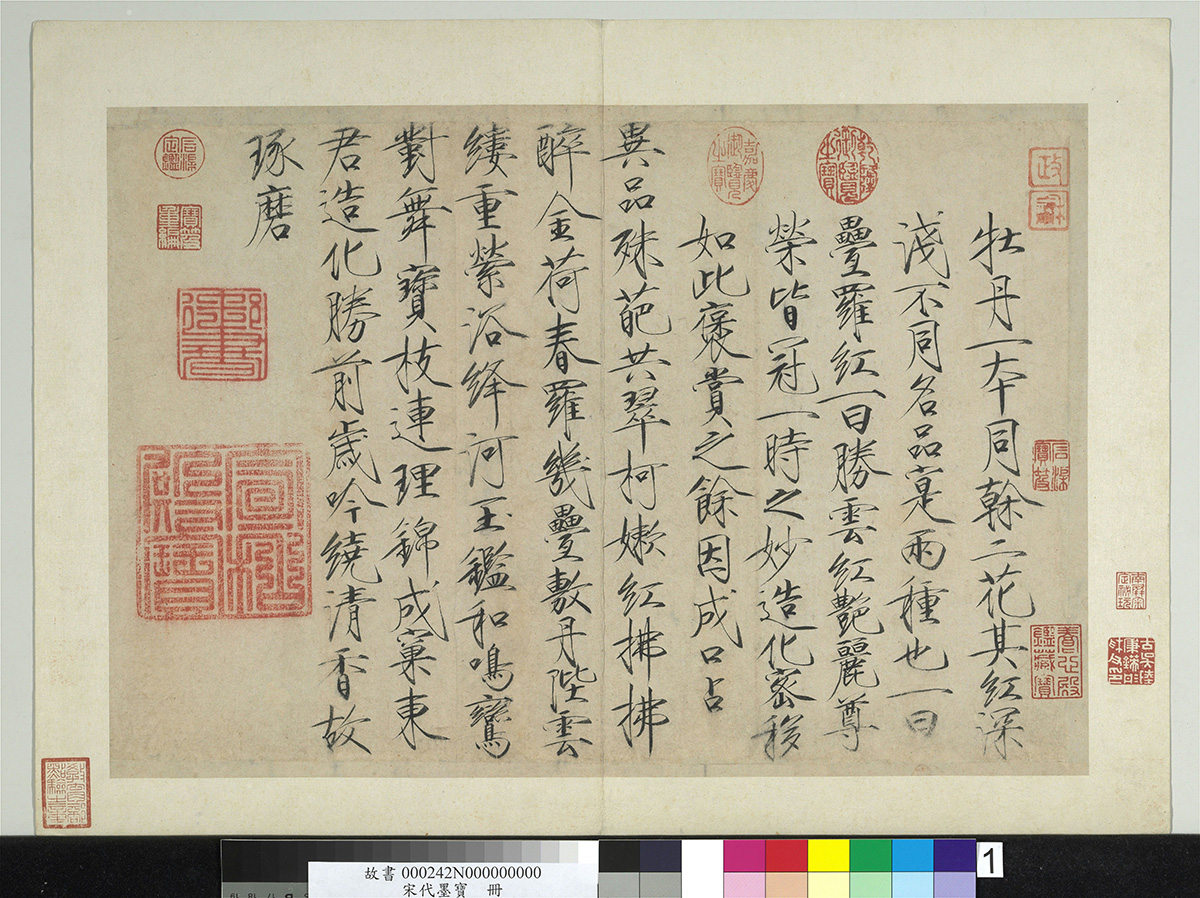 牡丹一本同幹二花其紅深
淺不同名品寔兩種也一曰
疊羅紅一曰勝雲紅艷麗尊
榮皆冠一時之妙造化密移
如此褒賞之餘因成口占
異品殊葩共翠柯嫩紅拂拂
醉金荷春羅幾疊敷丹陛雲
縷重縈浴絳河玉鑑和鳴鸞
對舞寶枝連理錦成窠東
君造化勝前歲吟繞清香故
琢磨
乾隆御覽之寶
嘉慶御覽之寶
石渠寶笈
養心殿鑑藏寶
石渠定鑑
寶笈重編
故書 000242N000000000
宋代墨寶 冊
1